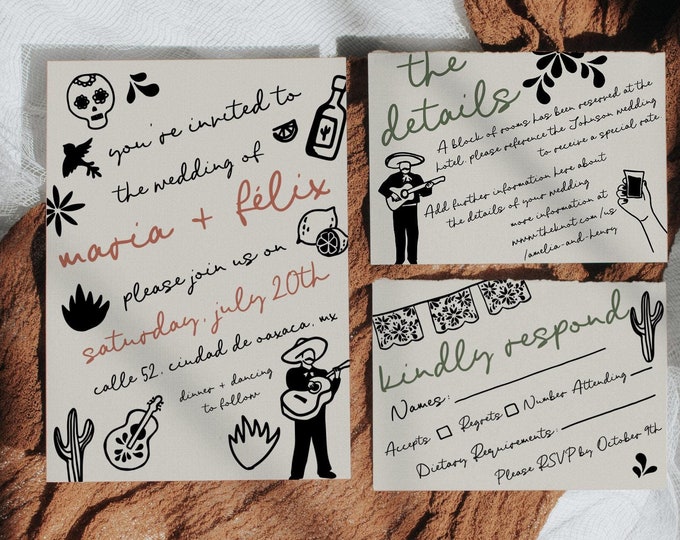 you're invited to
the wedding of
maria + félix
please join us on
saturday, july 20th
calle 52, ciudad de oaxaca, mx
dinner + dancing
to follow
the
details
A block of rooms has been reserved at the
hotel. please reference the Johnson wedding
to receive a special rate
Add further information here about
the details of your wedding
more information at
www.theknot.com/us
/amelia-and-henry
kindly respond
Names:
Accepts Regrets Number Attending
Dietary Requirements:
Please RSVP by October 9th